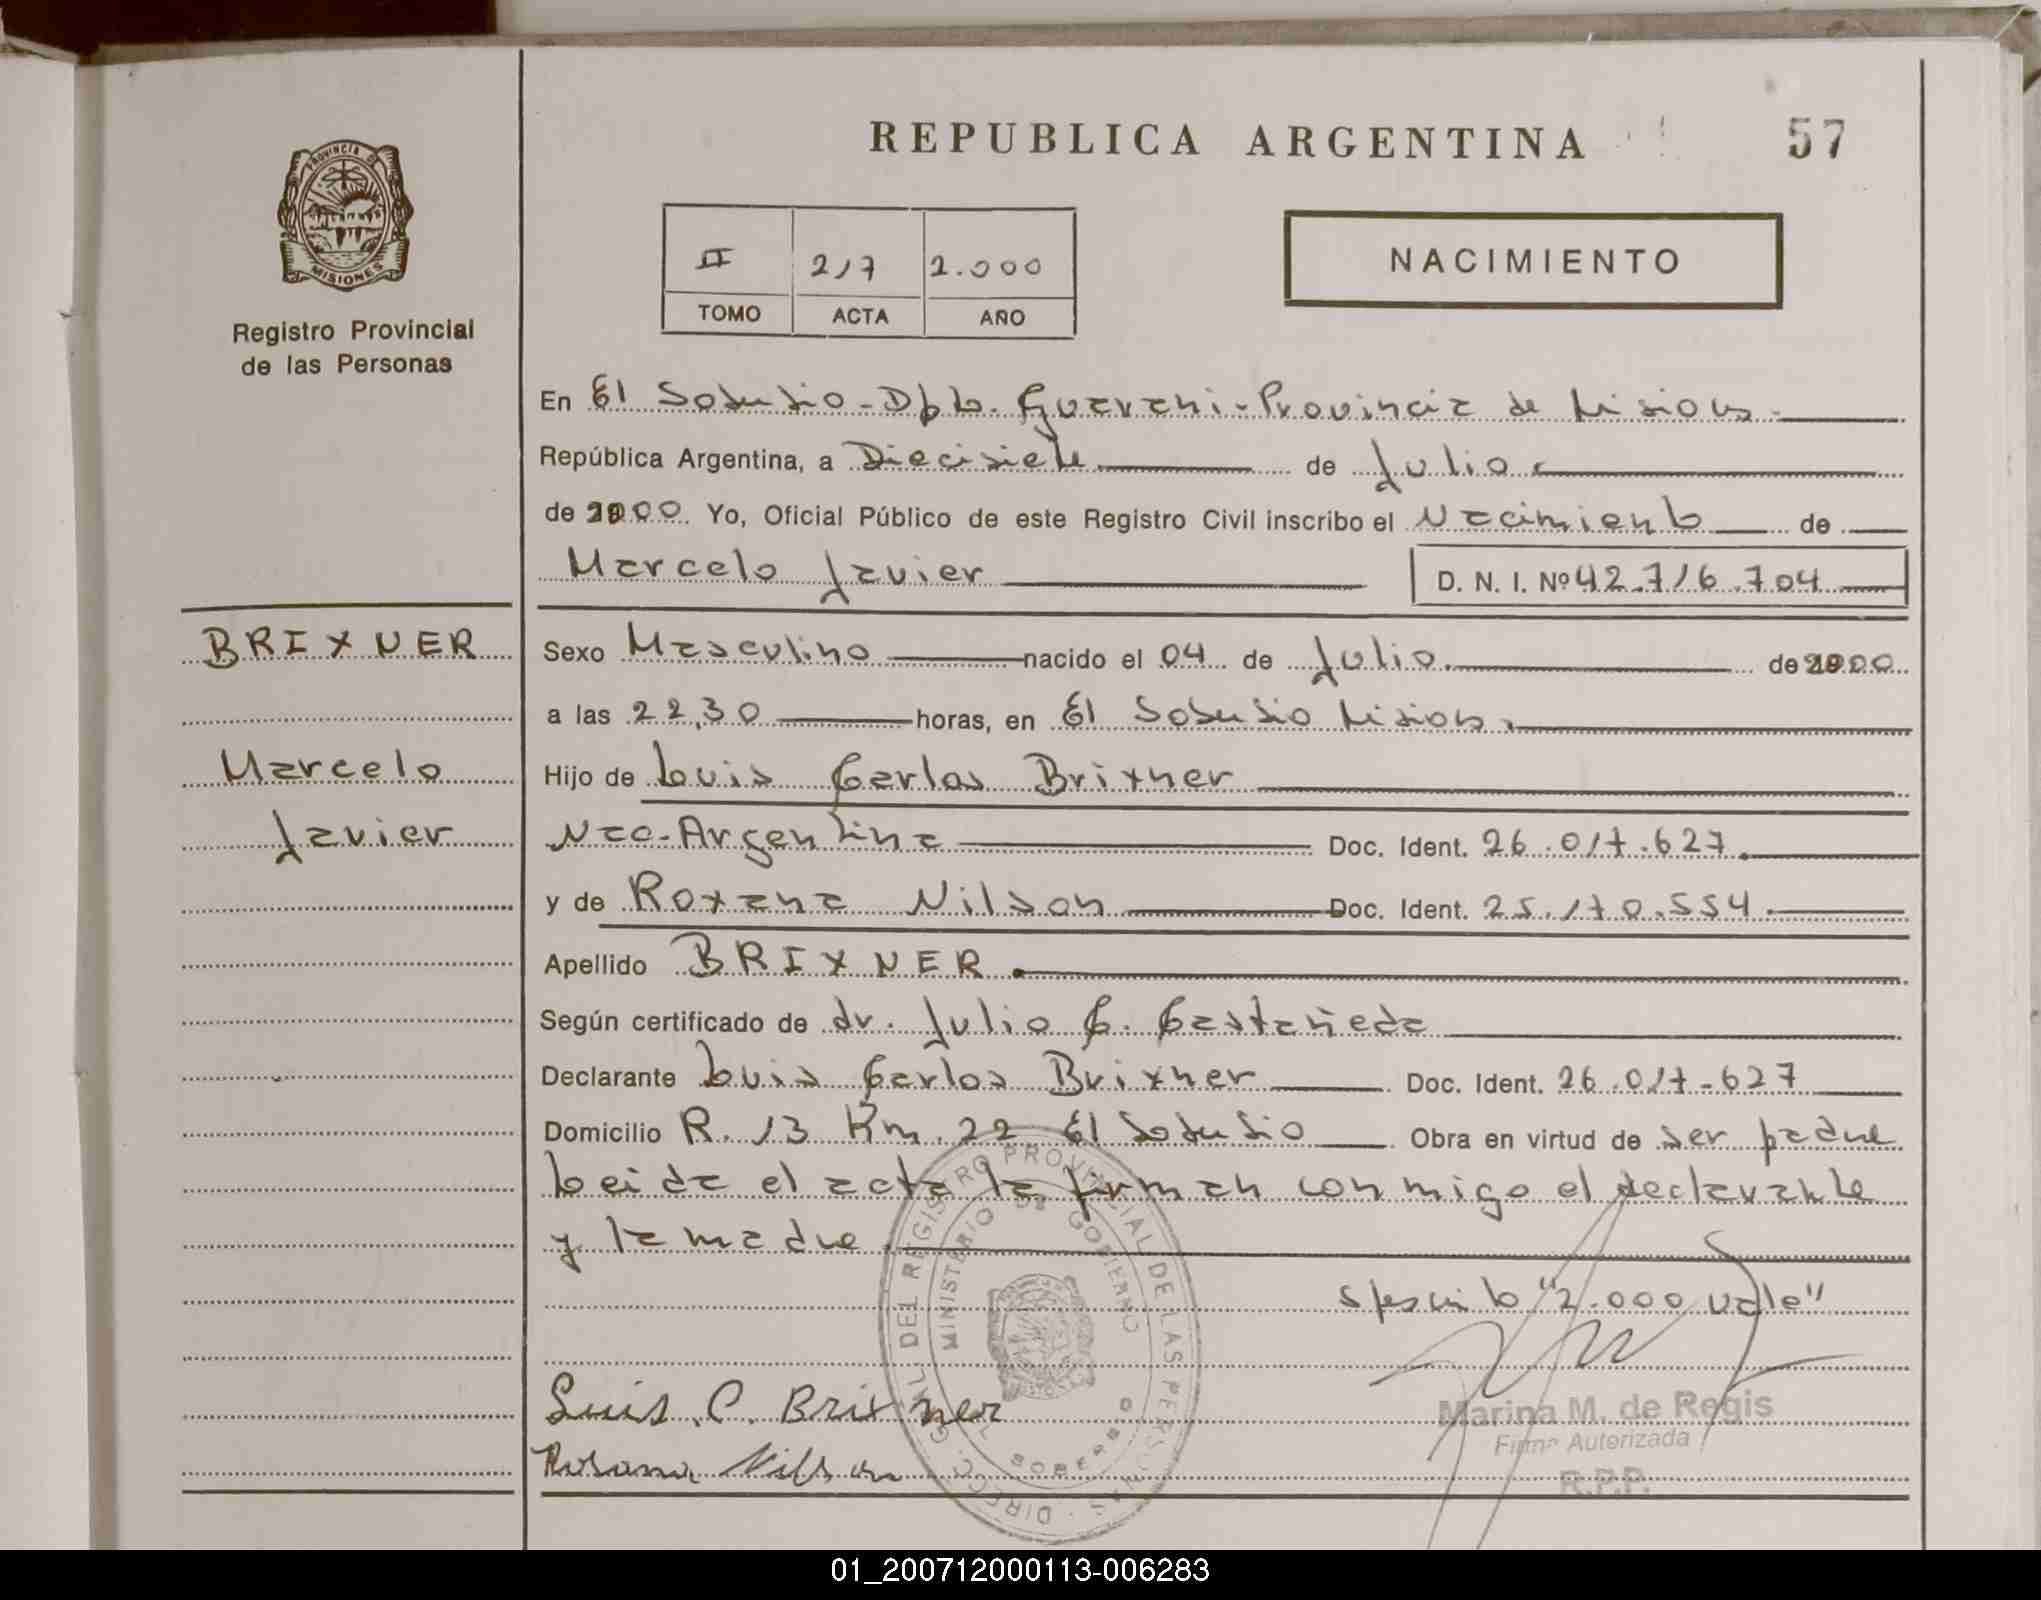 REPUBLICA ARGENTINA 57
PROVINCIA DE MISIONES
Registro Provincial
de las Personas
II 217 2.000
TOMO ACTA AÑO
NACIMIENTO
En El Soberbio-Dpto. Guarani-Provincia de Misiones.
República Argentina, a Diecisiete de Julio
de 2000. Yo, Oficial Público de este Registro Civil inscribo el Nacimiento de
Marcelo Javier D. N. I. Nº 42.716.704
BRIXNER
Marcelo
Javier
Sexo Masculino nacido el 04 de Julio. de 2000
a las 22,30 horas, en El Soberbio Misiones.
Hijo de Luis Carlos Brixner
Nac-Argentina Doc. Ident. 26.017.627.
y de Roxana Nilson Doc. Ident. 25.170.554
Apellido BRIXNER.
Según certificado de dr. Julio C. Castañeda
Declarante Luis Carlos Brixner Doc. Ident. 26.017-627
Domicilio R. 13 Km. 22 El Soberbio Obra en virtud de ser padre
Leida el acta la firman conmigo el declarante
y la madre.
"2.000 vale"
Luis C. Brixner
Rosana Nilson
DIRECC. GRAL. DEL REGISTRO PROVINCIAL DE LAS PERSONAS
MINISTERIO DE GOBIERNO
SOBERBIO
Marina M. de Regis
Firma Autorizada
R.P.P.
01_200712000113-006283